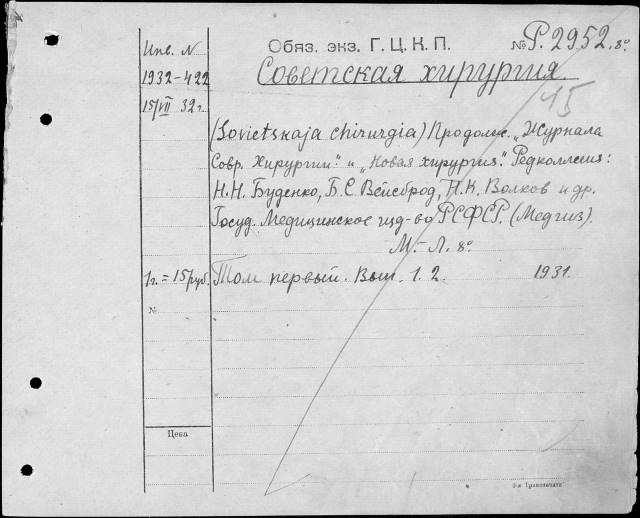 Инв. N
Обяз. экз. Г. Ц. К. П.
№ Р. 2952. 8º
1932-422
Советская хирургия.
15/VII 32 г.
15
(Sovietskaja chirurgia) Продолж. „Журнала
Совр. Хирургии" и „Новая хирургия". Редколлегия:
Н.Н. Буденко, Б.С. Вейсброд, Н.К. Волков и др.
Госуд. Медицинское изд-во РСФСР. (Медгиз).
М.-Л. 8º.
1 г. = 15 руб.
Том первый. Вып. 1. 2. 1931.
№
Цена
3-я „Транспечати"